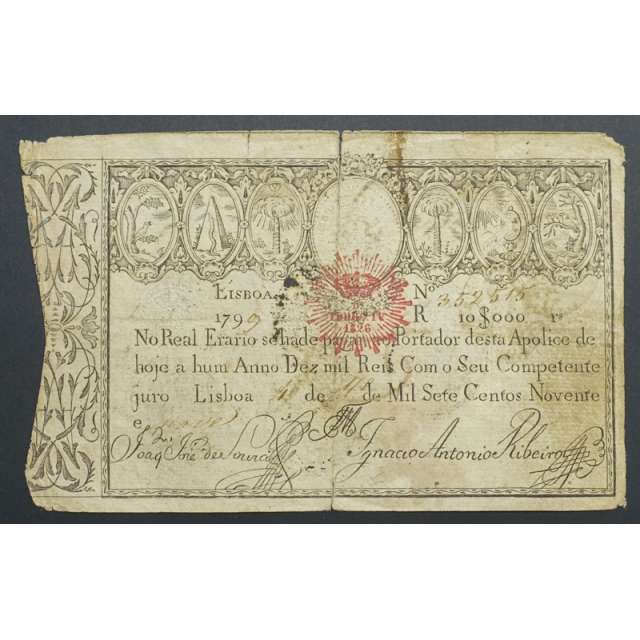 LISBOA Nº 352515
1799 PEDRO IV R 10$000 rs
1826
No Real Erario se hade pagar ao Portador desta Apolice de
hoje a hum Anno Dez mil Reis Com o Seu Competente
juro Lisboa de de Mil Sete Centos Novente
e
Joaq Jné de Souza Ignacio Antonio Ribeiro